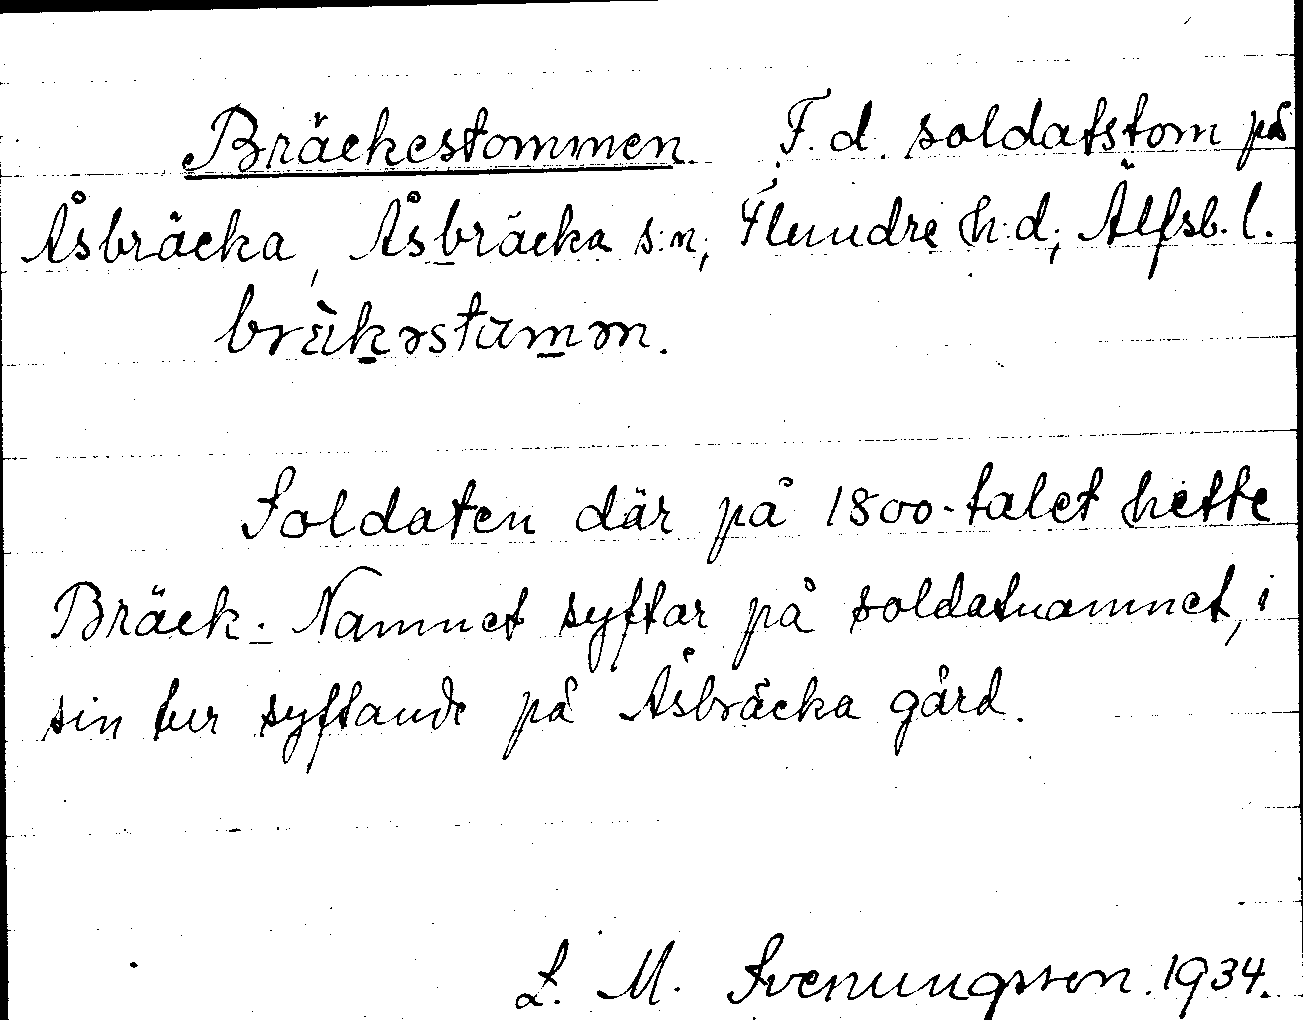 Bräckestommen. F. d. soldatstom på
Åsbräcka, Åsbräcka s:n, Flundre h:d, Älfsb. l.
brä̀kəstùmən.
Soldaten där på 1800-talet hette
Bräck. Namnet syftar på soldatnamnet, i
sin tur syftande på Åsbräcka gård.
L. M. Svenungsson. 1934.